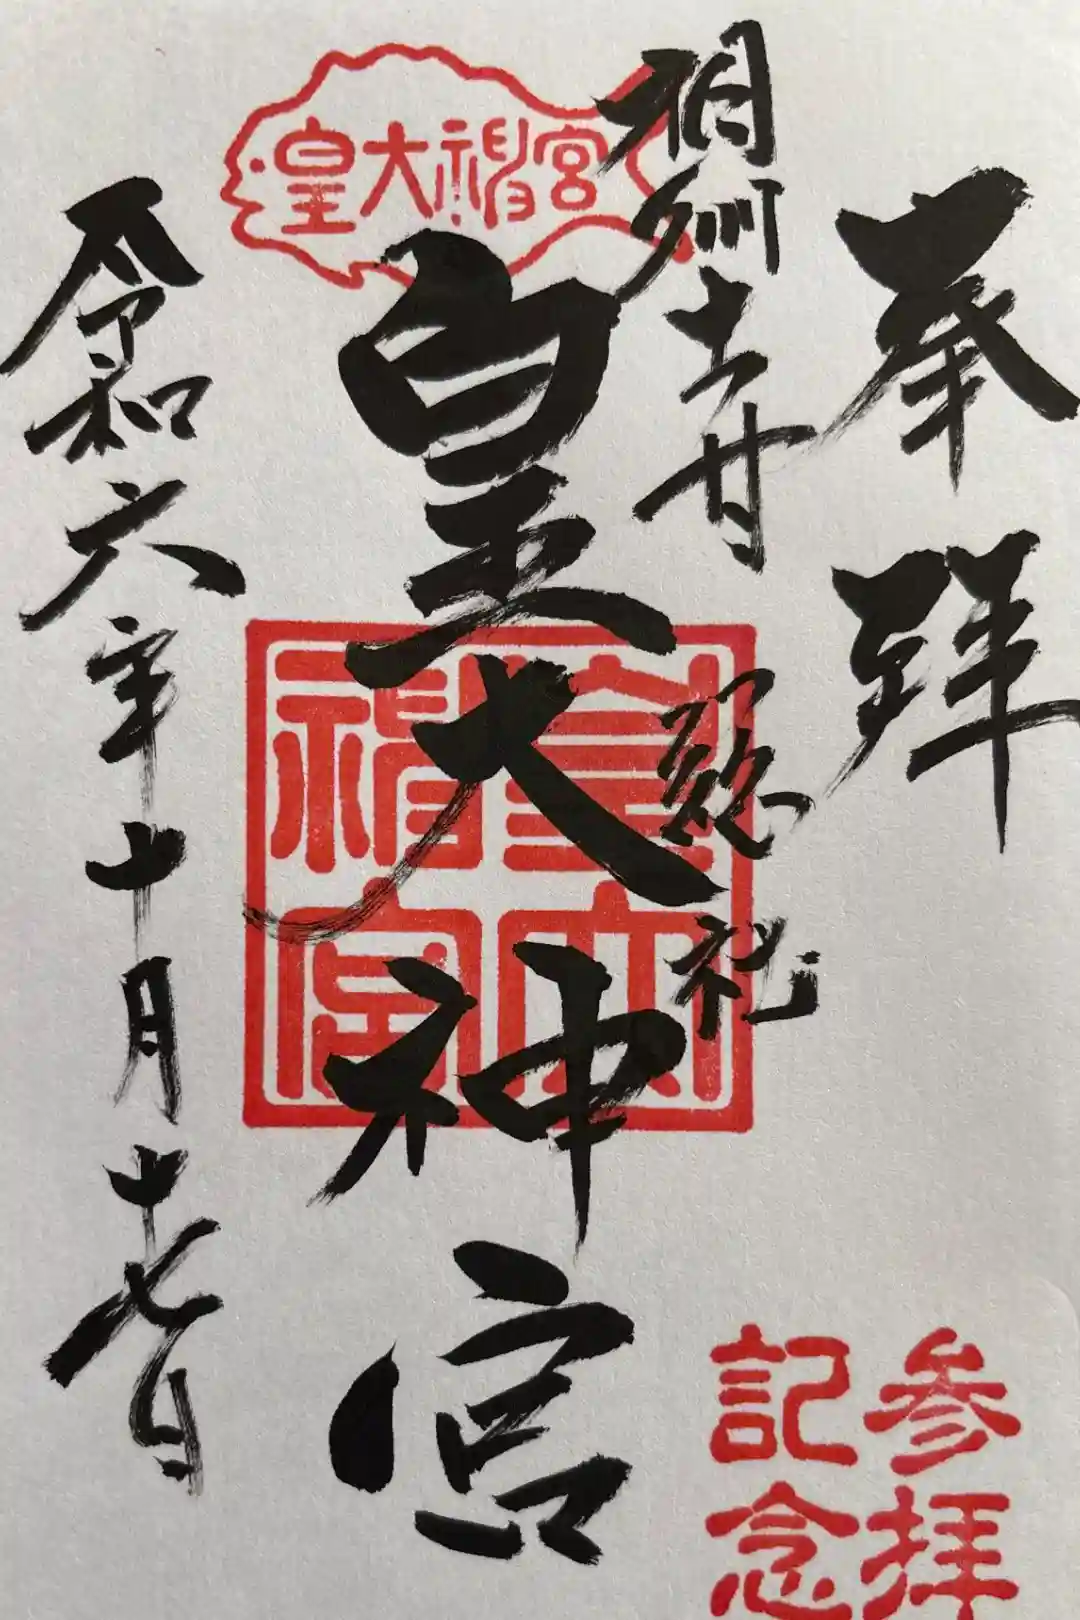 奉拝
相州土甘
総社
皇大神宮
皇大神宮
皇大神宮
令和六年十月十七日
参拝
記念